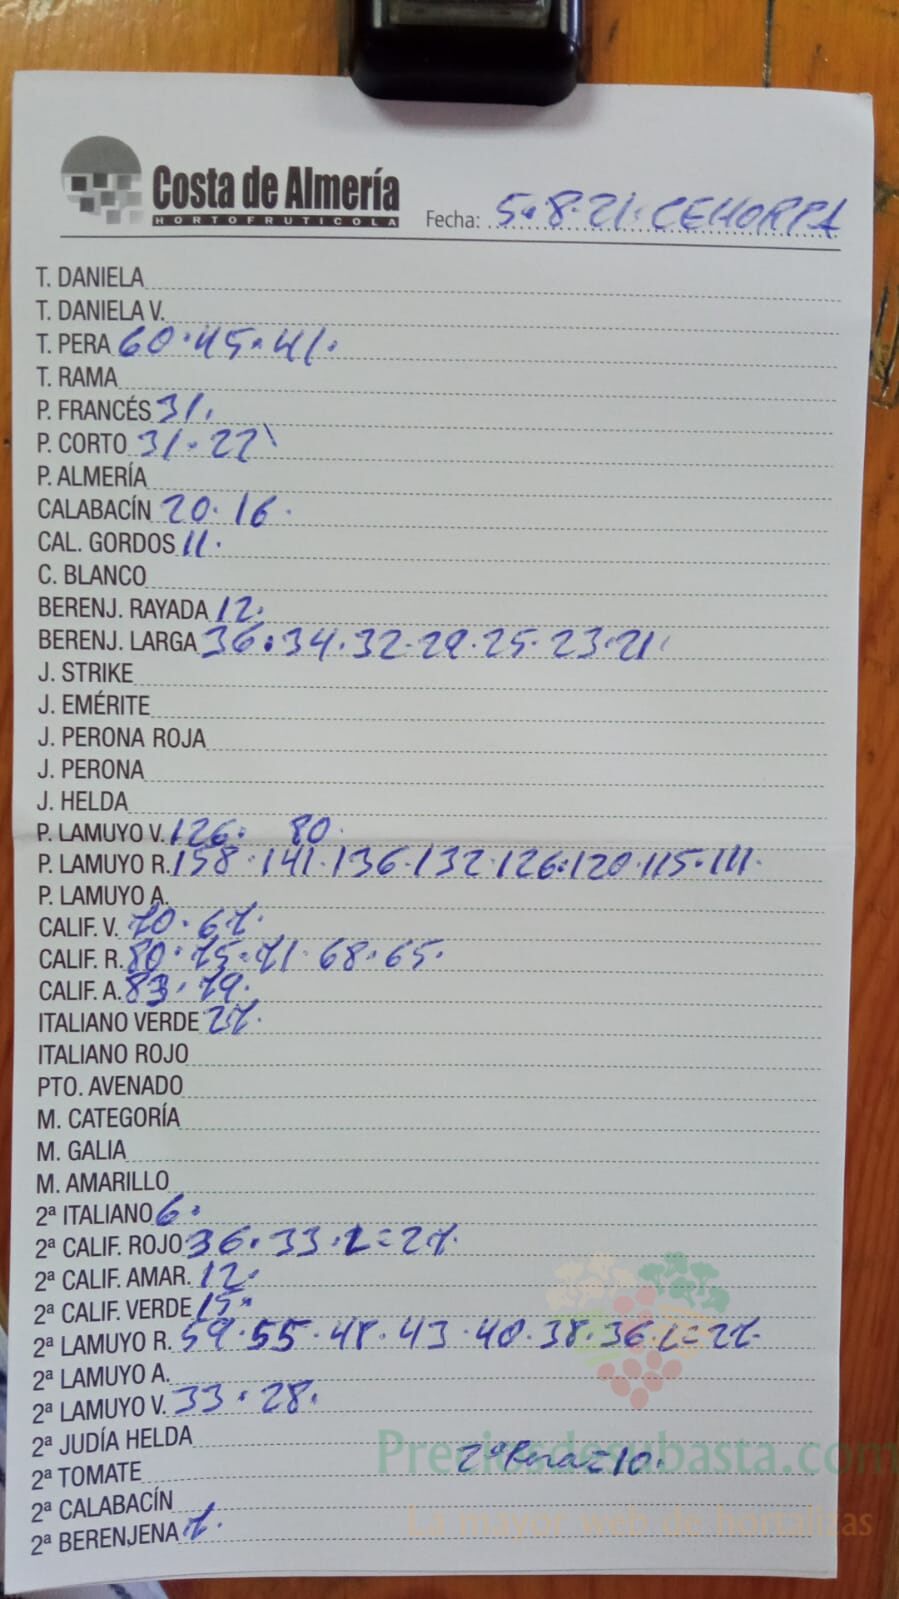 Costa de Almería
HORTOFRUTICOLA
Fecha: 5.8.21. CEHORPA
T. DANIELA
T. DANIELA V.
T. PERA 60.45.41.
T. RAMA
P. FRANCÉS 31.
P. CORTO 31.22
P. ALMERÍA
CALABACÍN 20.16.
CAL. GORDOS 11.
C. BLANCO
BERENJ. RAYADA 12.
BERENJ. LARGA 36.34.32.29.25.23.21
J. STRIKE
J. EMÉRITE
J. PERONA ROJA
J. PERONA
J. HELDA
P. LAMUYO V. 126. 80.
P. LAMUYO R. 158.141.136.132.126.120.115.111.
P. LAMUYO A.
CALIF. V. 70.67.
CALIF. R. 80.75.71.68.65.
CALIF. A. 83.79.
ITALIANO VERDE 27.
ITALIANO ROJO
PTO. AVENADO
M. CATEGORÍA
M. GALIA
M. AMARILLO
2ª ITALIANO 6.
2ª CALIF. ROJO 36.33.L=27.
2ª CALIF. AMAR. 12.
2ª CALIF. VERDE 15.
2ª LAMUYO R. 59.55.48.43.40.38.36.L=27.
2ª LAMUYO A.
2ª LAMUYO V. 33.28.
2ª JUDÍA HELDA
2ª TOMATE 2ª Pera=10.
2ª CALABACÍN
2ª BERENJENA 7.
Preciosdesubasta.com
La mayor web de hortalizas